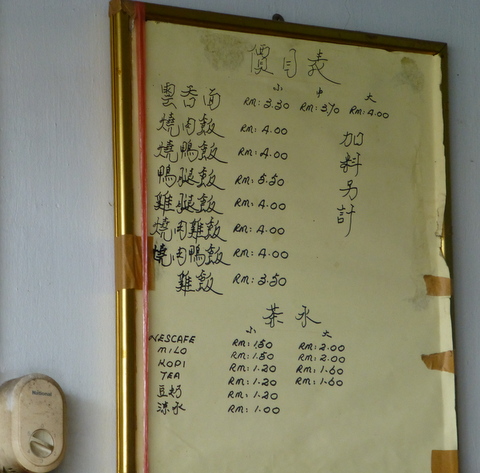 價目表
小 中 大
雲吞面 RM: 3.30 RM: 3.70 RM: 4.00
燒肉飯 RM: 4.00
燒鴨飯 RM: 4.00
鴨腿飯 RM: 5.50
雞腿飯 RM: 4.00
燒肉雞飯 RM: 4.00
燒肉鴨飯 RM: 4.00
雞飯 RM: 3.50
加料另計
茶水
小 大
NESCAFE RM: 1.50 RM: 2.00
MILO RM: 1.50 RM: 2.00
KOPI RM: 1.20 RM: 1.60
TEA RM: 1.20 RM: 1.60
豆奶 RM: 1.20
涼水 RM: 1.00